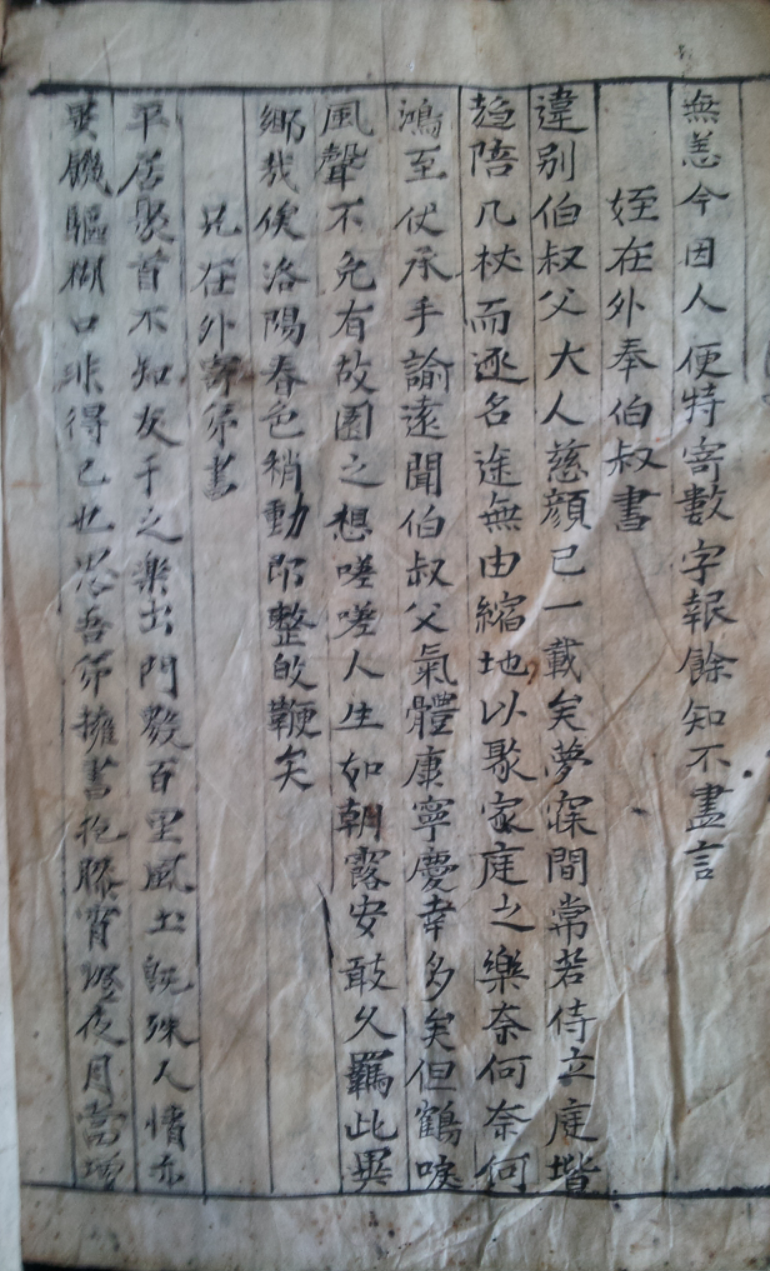 無恙今因人便特寄數字報餘知不盡言
姪在外奉伯叔書
違別伯叔父大人慈顔已一載矣夢寐間常若侍立庭堦
趍陪几杖而逐名途無由縮地以聚家庭之樂奈何奈何
鴻至伏承手諭遠聞伯叔父氣體康寧慶幸多矣但鶴唳
風聲不免有故園之想嗟嗟人生如朝露安敢久羈此異
鄉哉俟洛陽春色稍動即整敀鞭矣
兄在外寄弟書
平居聚首不知友于之樂出門数百里風土既殊人情亦
異饑驅糊口非得已也思吾弟擁書抱膝宵燈夜月當增